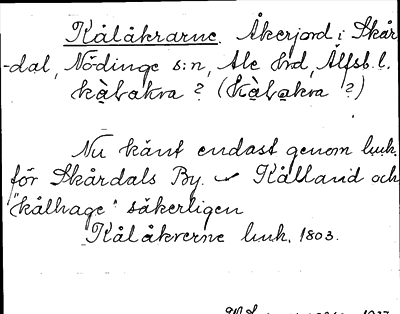 Kålåkrarne. Åkerjord i Skår
-dal, Nödinge s:n, Ale hrd, Älfsb. l.
kàlvakra ? (kàlvakra ?)
Nu känt endast genom luuk.
för Skårdals By. Kålland och
"kålhage" säkerligen
Kålåkrerne luuk. 1803.